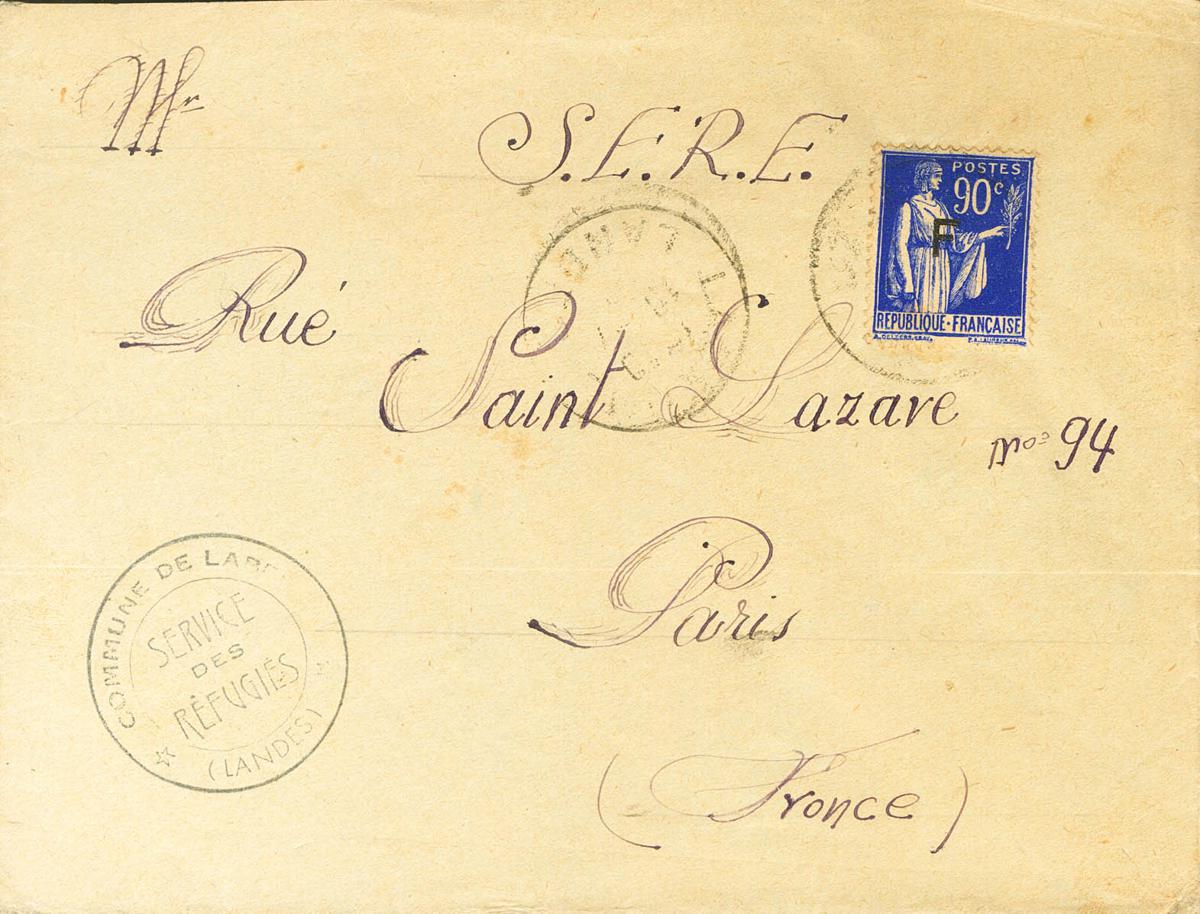 Mr
S.E.R.E.
POSTES
90 c
F
RÉPUBLIQUE·FRANÇAISE
Rué
Saint Lazare
no= 94
Paris
(Fronce)
COMMUNE DE
SERVICE
DES
RÉFUGIÉS
(LANDES)